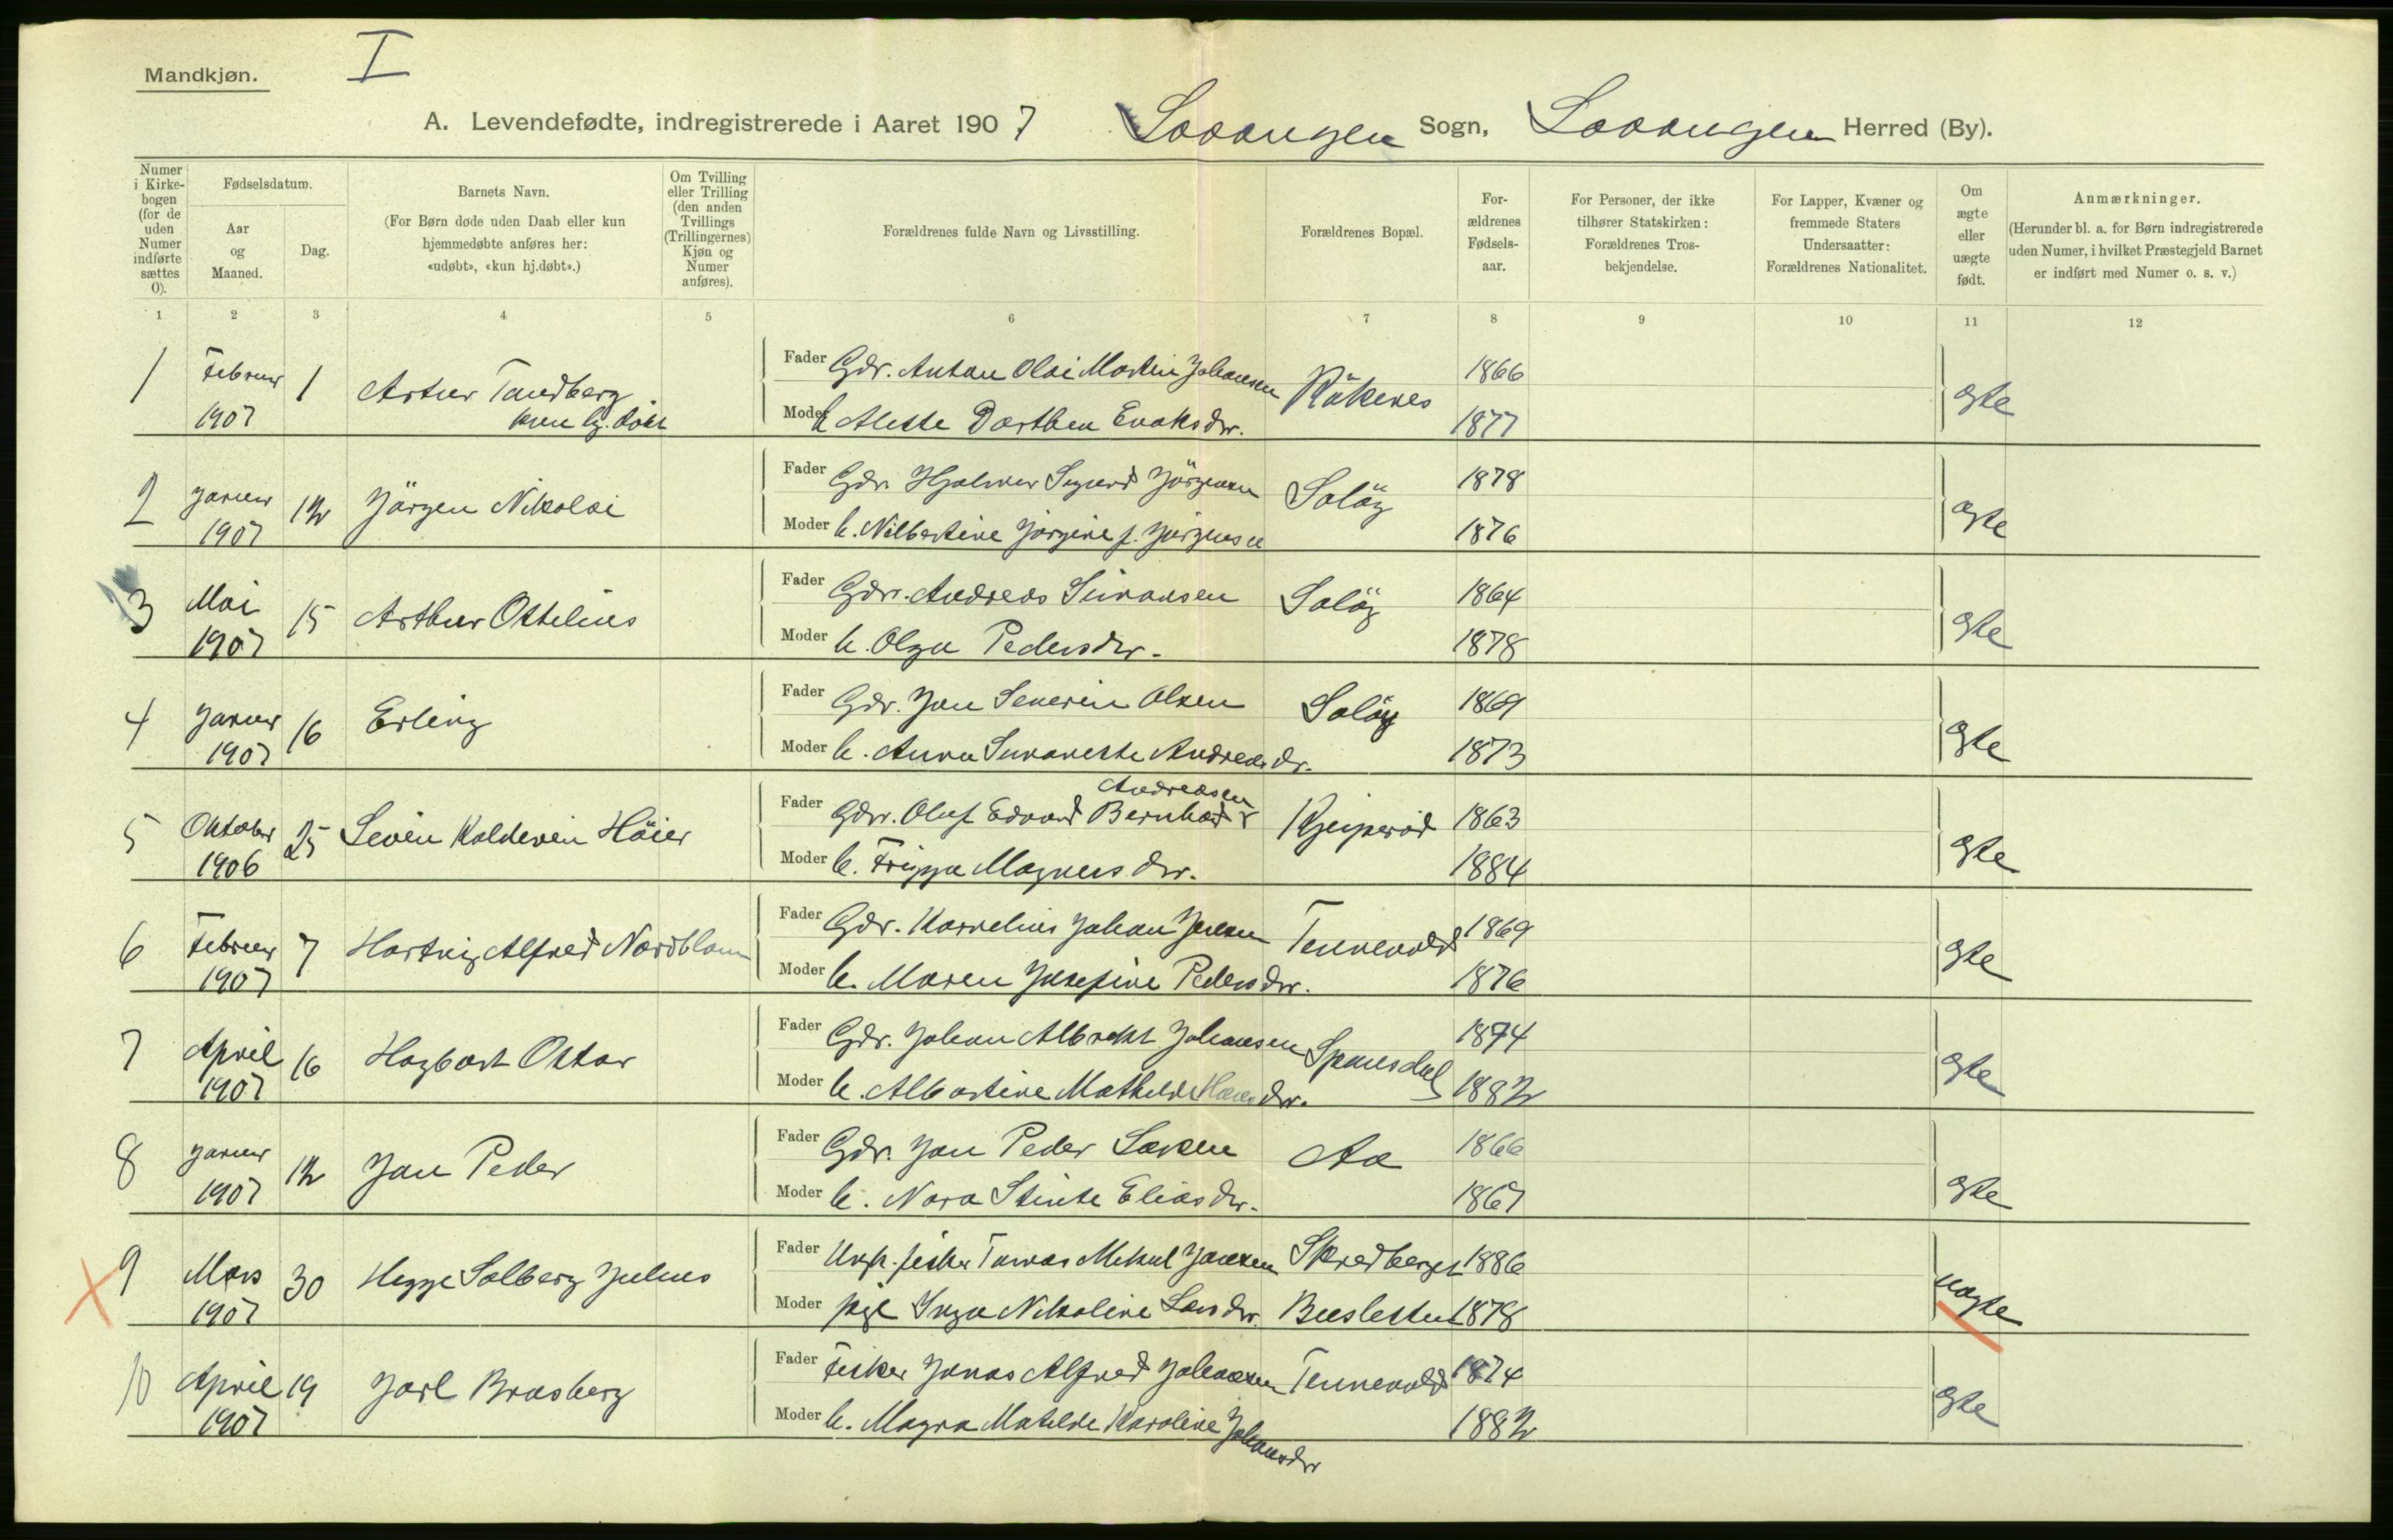 Mandkjøn.
I
A. Levendefødte, indregistrerede i Aaret 1907 Lavangen Sogn, Lavangen Herred (By).
Numer i Kirke-bogen (for de uden Numer indførte sættes 0).
Fødselsdatum.
Aar og Maaned.
Dag.
Barnets Navn.
(For Børn døde uden Daab eller kun hjemmedøbte anføres her: «udøbt», «kun hj.døbt».)
Om Tvilling eller Trilling (den anden Tvillings (Trillingernes) Kjøn og Numer anføres).
Forældrenes fulde Navn og Livsstilling.
Forældrenes Bopæl.
For-ældrenes Fødsels-aar.
For Personer, der ikke tilhører Statskirken: Forældrenes Tros-bekjendelse.
For Lapper, Kvæner og fremmede Staters Undersaatter: Forældrenes Nationalitet.
Om ægte eller uægte født.
Anmærkninger.
(Herunder bl. a. for Børn indregistrerede uden Numer, i hvilket Præstegjeld Barnet er indført med Numer o. s. v.)
1 2 3 4 5 6 7 8 9 10 11 12
1 Februar 1907 1 Artur Tandberg kun hj. døbt
Fader Gdr. Anton Olai Martin Johansen Räkenes 1866
Moder h Alette Dorthea Enoksdtr. 1877 ægte
2 Januar 1907 12 Jörgen Nikolai
Fader Gdr. Hjalmar Sigurd Jörgensen Salöy 1878
Moder h. Nilbertine Jörgine f. Jörgensen 1876 ægte
3 Mai 1907 15 Arthur Ottelius
Fader Gdr. Andreas Simonsen Salöy 1864
Moder h. Olga Pedersdtr. 1878 ægte
4 Januar 1907 16 Erling
Fader Gdr. Jan Severin Olsen Salöy 1869
Moder h. Anna Susanette Andreasdr. 1873 ægte
5 Oktober 1906 25 Sevin Koldevin Höier
Andreasen
Fader Gdr. Oluf Edvard Bernhard 1863
Moder h. Frigga Magnusdtr. 1884 ægte
6 Februar 1907 7 Hartvig Alfred Nordblom
Fader Gdr. Kornelius Johan Jensen Tennevold 1869
Moder h. Maren Josefine Pedersdtr. 1876 ægte
7 April 1907 16 Hagbart Ottar
Fader Gdr. Johan Albrekt Johansen Spansdal 1874
Moder h. Albertine Mathilde Hansdtr. 1882 ægte
8 Januar 1907 12 Jan Peder
Fader Gdr. Jan Peder Larsen Aa 1866
Moder h. Nora Stinte Eliasdtr. 1867 ægte
9 Mars 1907 30 Hegge Solberg Julius
Fader Ungk. fisker Tomas Mikal Jansen Skredberget 1886
Moder pige Inga Nikoline Larsdtr. 1878 uægte
10 April 1907 19 Jarl Brasberg
Fader Fisker Jonas Alfred Johansen Tennevold 1874
Moder h. Magna Matilde Karoline Johansdtr 1882 ægte